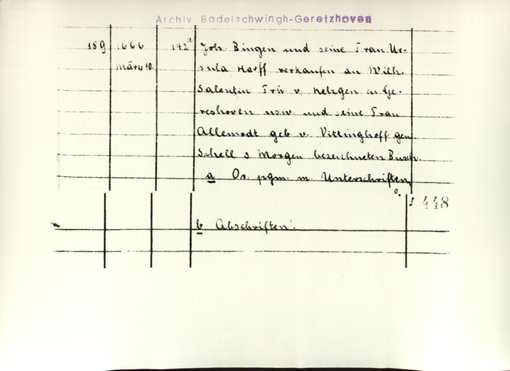 Archiv Bodelschwingh-Geretzhoven
189 1666 142a Joh Bingen und seine Frau Ur-
März 12. sula Horff verkaufen an Wilh.
Salentin Frh v. Nesselrode in Ge-
reshoven usw und seine Frau
geb v. Vittinghoff gen
Schell 3 Morgen bezeichneten Busch.
a Or. pgm. m. Unterschriften
448
b Abschriften.